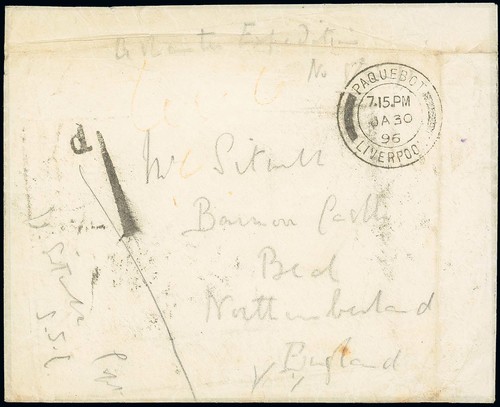 Ashantee Expedition
No
PAQUEBOT
7.15.PM
JA 30
96
LIVERPOO
d
1
Mrs Sitwell
Barmoor Castle
Beal
Northumberland
England
Sitwell